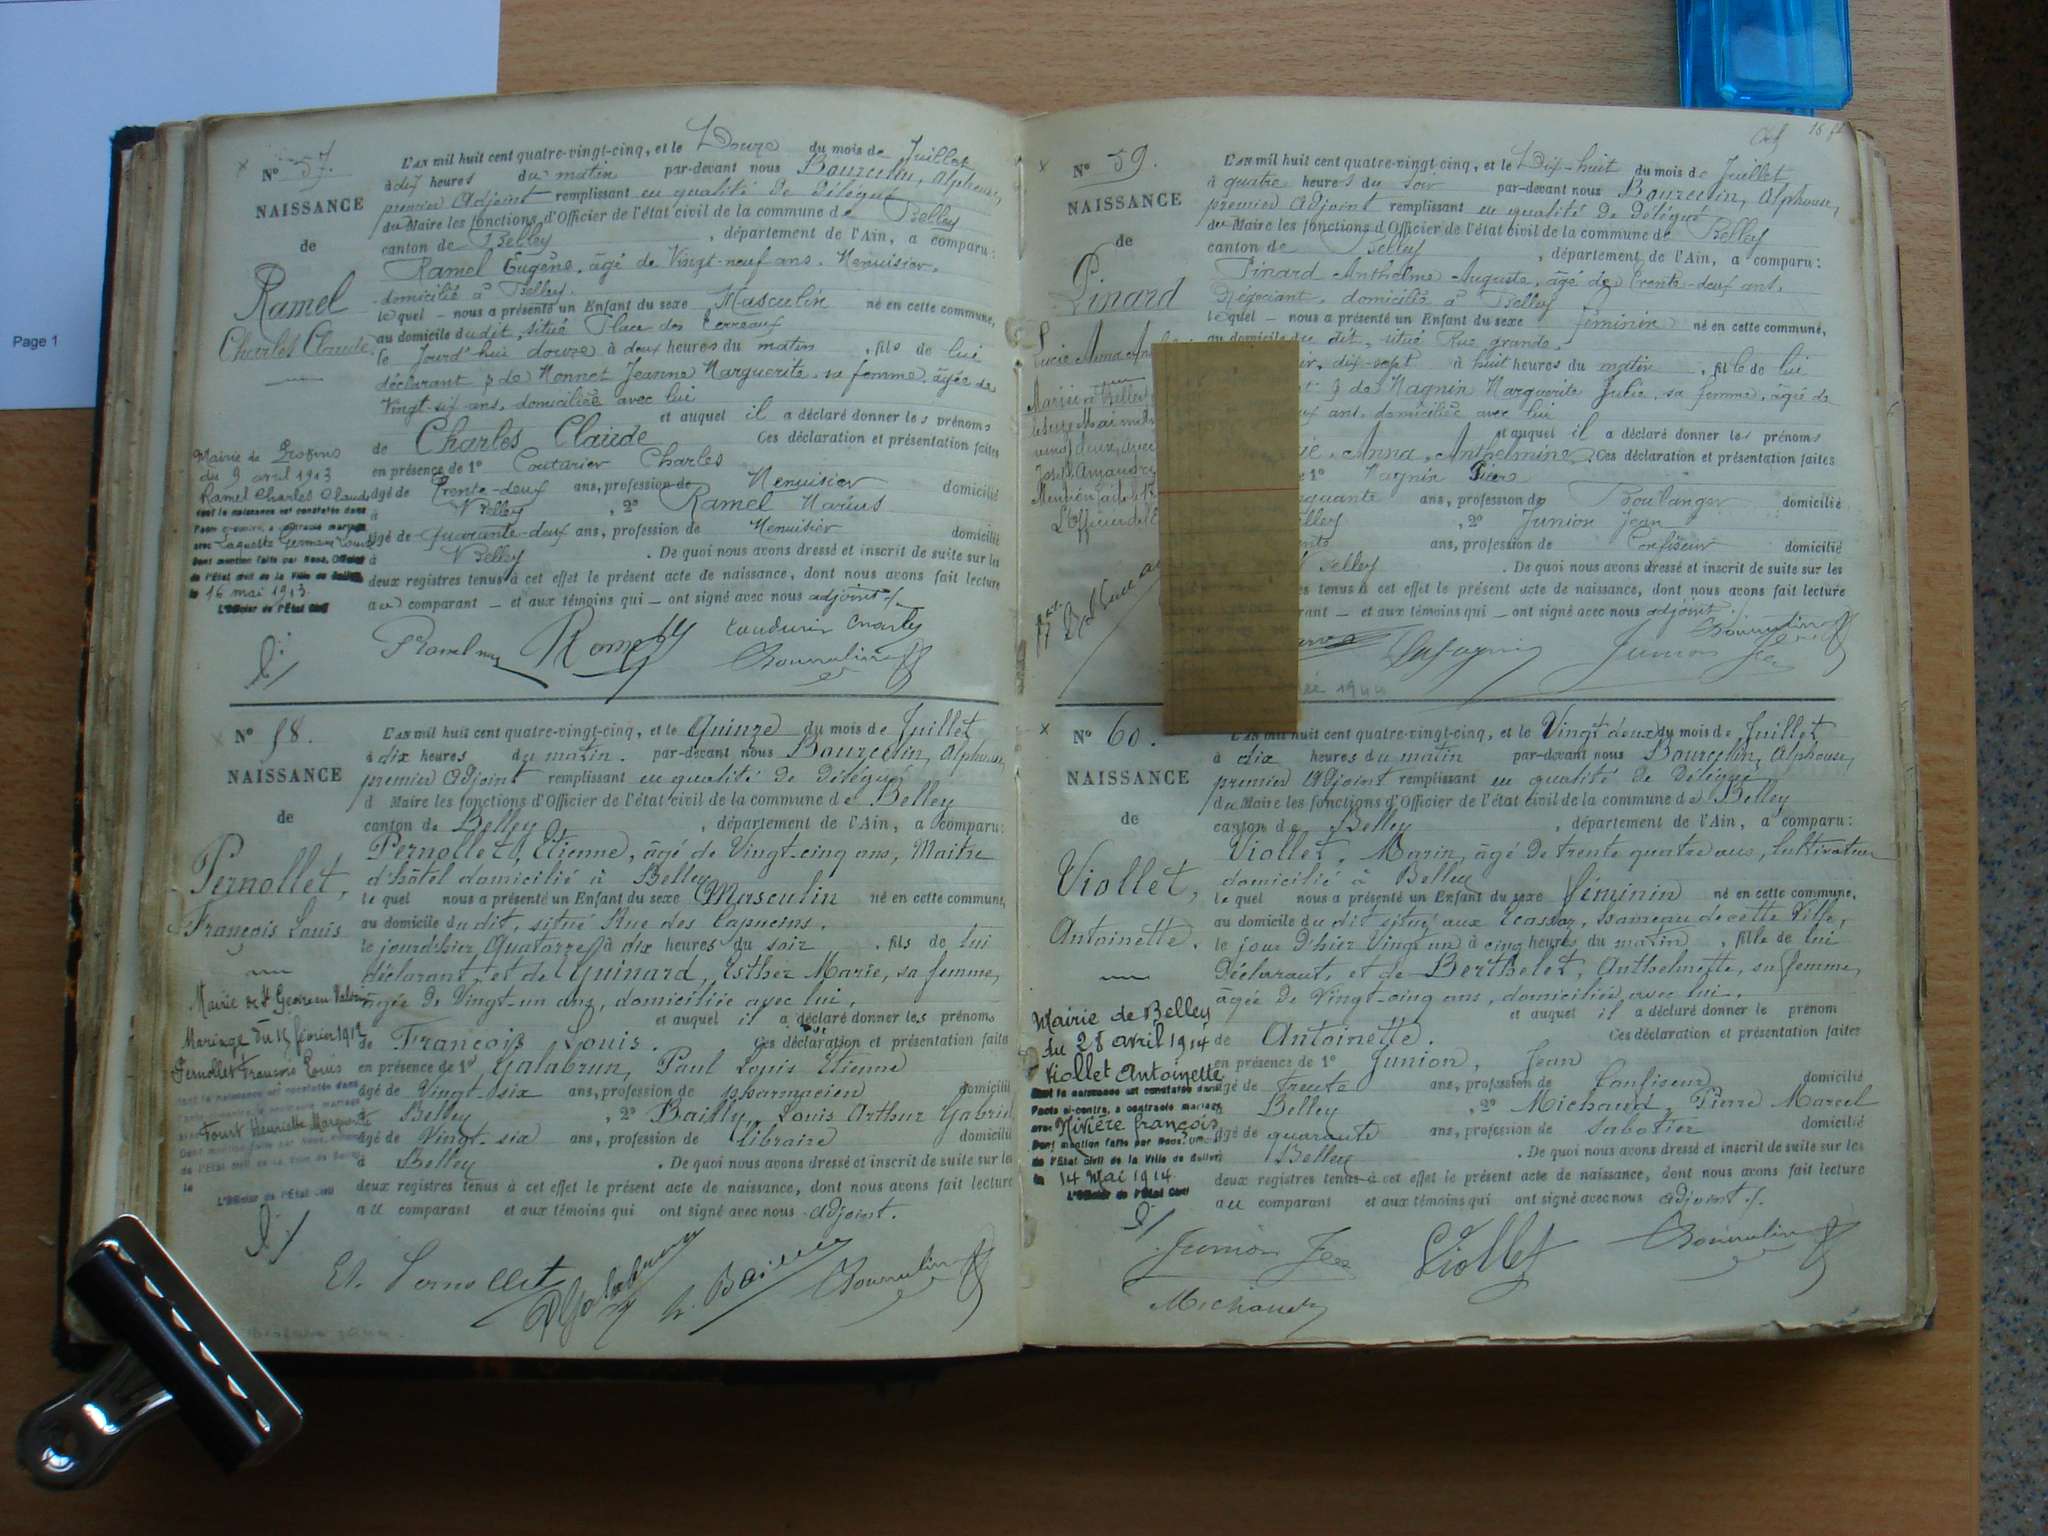 Page 1
N° 57.
NAISSANCE
de
Ramel
Charles Claude
L'AN mil huit cent quatre-vingt-cinq, et le Douze du mois de Juillet
à dix heures du matin par-devant nous Bourcelin, Alphonse,
premier Adjoint remplissant en qualité de délégué
du Maire les fonctions d'Officier de l'état civil de la commune de Belley
canton de Belley, département de l'Ain, a comparu:
Ramel Eugène, âgé de Vingt-neuf ans, Menuisier,
domicilié à Belley.
lequel – nous a présenté un Enfant du sexe Masculin né en cette commune,
au domicile du dit, situé Place des Terreaux
le jourd'hui douze à deux heures du matin, fils de lui
déclarant & de Monnet Jeanne Marguerite, sa femme, âgée de
Vingt-six ans, domiciliée avec lui
et auquel il a déclaré donner les prénoms
de Charles Claude Ces déclaration et présentation faites
en présence de 1° Coutarier Charles
âgé de Trente-deux ans, profession de Menuisier domicilié
à Belley, 2° Ramel Marius
âgé de quarante-deux ans, profession de Menuisier domicilié
à Belley. De quoi nous avons dressé et inscrit de suite sur les
deux registres tenus à cet effet le présent acte de naissance, dont nous avons fait lecture
au comparant – et aux témoins qui – ont signé avec nous adjoint ./.
Mairie de
du 9 avril 1913
Ramel Charles Claude
dont la naissance est constatée dans
l'acte ci-contre, a contracté mariage
avec Laquette Germaine Louise
Dont mention faite par Nous, Officier
de l'État civil de la Ville de Belley
le 16 mai 1913.
L'Officier de l'État Civil
N° 58.
NAISSANCE
de
Pernollet,
François Louis
L'AN mil huit cent quatre-vingt-cinq, et le Quinze du mois de Juillet
à dix heures du matin. par-devant nous Bourcelin, Alphonse,
premier Adjoint remplissant en qualité de Délégué
d Maire les fonctions d'Officier de l'état civil de la commune de Belley
canton de Belley, département de l'Ain, a comparu:
Pernollet, Etienne, âgé de Vingt-cinq ans, Maître
d'hôtel domicilié à Belley
lequel nous a présenté un Enfant du sexe Masculin né en cette commune,
au domicile du dit, situé Rue des Capucins,
le jour d'hier Quatorze à dix heures du soir, fils de lui
déclarant et de Guinard, Esther Marie, sa femme,
âgée de Vingt-un ans, domiciliée avec lui,
et auquel il a déclaré donner les prénoms
de François Louis. Ces déclaration et présentation faites
en présence de 1° Galabrun, Paul Louis Etienne
âgé de Vingt-six ans, profession de pharmacien domicilié
à Belley, 2° Bailly, Louis Arthur Gabriel
âgé de Vingt-six ans, profession de libraire domicilié
à Belley. De quoi nous avons dressé et inscrit de suite sur les
deux registres tenus à cet effet le présent acte de naissance, dont nous avons fait lecture
au comparant et aux témoins qui ont signé avec nous adjoint.
Mairie de St Geoire en Valdaine
Mariage du 15 février 1912
Pernollet François Louis
dont la naissance est constatée dans
l'acte ci-contre, a contracté mariage
avec Tourt Henriette Marguerite
Dont mention faite par Nous, Officier
de l'État civil de la Ville de Belley
le
L'Officier de l'État Civil
Et. Pernollet
N° 59.
NAISSANCE
de
Pinard
Lucie Anna
L'AN mil huit cent quatre-vingt-cinq, et le Dix-huit du mois de Juillet
à quatre heures du soir par-devant nous Bourcelin, Alphonse,
premier Adjoint remplissant en qualité de délégué
du Maire les fonctions d'Officier de l'état civil de la commune de Belley
canton de Belley, département de l'Ain, a comparu:
Pinard Anthelme Auguste, âgé de trente-deux ans,
Négociant, domicilié à Belley
lequel – nous a présenté un Enfant du sexe féminin né en cette commune,
au domicile du dit, situé Rue grande,
dix-sept à huit heures du matin, fille de lui
& de Magnin Marguerite Julie, sa femme, âgée de
ans, domiciliée avec lui
et auquel il a déclaré donner les prénoms
Anna, Anthelmine. Ces déclaration et présentation faites
1° Magnin Pierre
ans, profession de Boulanger domicilié
2° Junion Jean
ans, profession de Confiseur domicilié
Belley. De quoi nous avons dressé et inscrit de suite sur les
tenus à cet effet le présent acte de naissance, dont nous avons fait lecture
– et aux témoins qui – ont signé avec nous adjoint ./.
Junion Jean
1944
N° 60.
NAISSANCE
de
Viollet,
Antoinette.
L'AN mil huit cent quatre-vingt-cinq, et le Vingt deux du mois de Juillet
à dix heures du matin par-devant nous Bourcelin, Alphonse,
premier Adjoint remplissant en qualité de Délégué
du Maire les fonctions d'Officier de l'état civil de la commune de Belley
canton de Belley, département de l'Ain, a comparu:
Viollet, Marin, âgé de trente quatre ans, cultivateur
domicilié à Belley
lequel nous a présenté un Enfant du sexe féminin né en cette commune,
au domicile du dit situé aux Ecassaz, hameau de cette Ville,
le jour d'hier Vingt un à cinq heures du matin, fille de lui
Déclarant, et de Berthelet, Anthelmette, sa femme,
âgée de Vingt-cinq ans, domiciliée avec lui.
et auquel il a déclaré donner le prénom
de Antoinette. Ces déclaration et présentation faites
en présence de 1° Junion, Jean
âgé de trente ans, profession de Confiseur domicilié
Belley, 2° Michaud, Pierre Marcel
âgé de quarante ans, profession de sabotier domicilié
Belley. De quoi nous avons dressé et inscrit de suite sur les
deux registres tenus à cet effet le présent acte de naissance, dont nous avons fait lecture
au comparant et aux témoins qui ont signé avec nous adjoint ./.
Mairie de Belley
du 28 avril 1914
Viollet Antoinette
dont la naissance est constatée dans
l'acte ci-contre, a contracté mariage
avec Rivière françois
Dont mention faite par Nous, Officier
de l'État civil de la Ville de Belley
le 14 Mai 1914
L'Officier de l'État Civil
Junion Jean
Viollet
Michaud